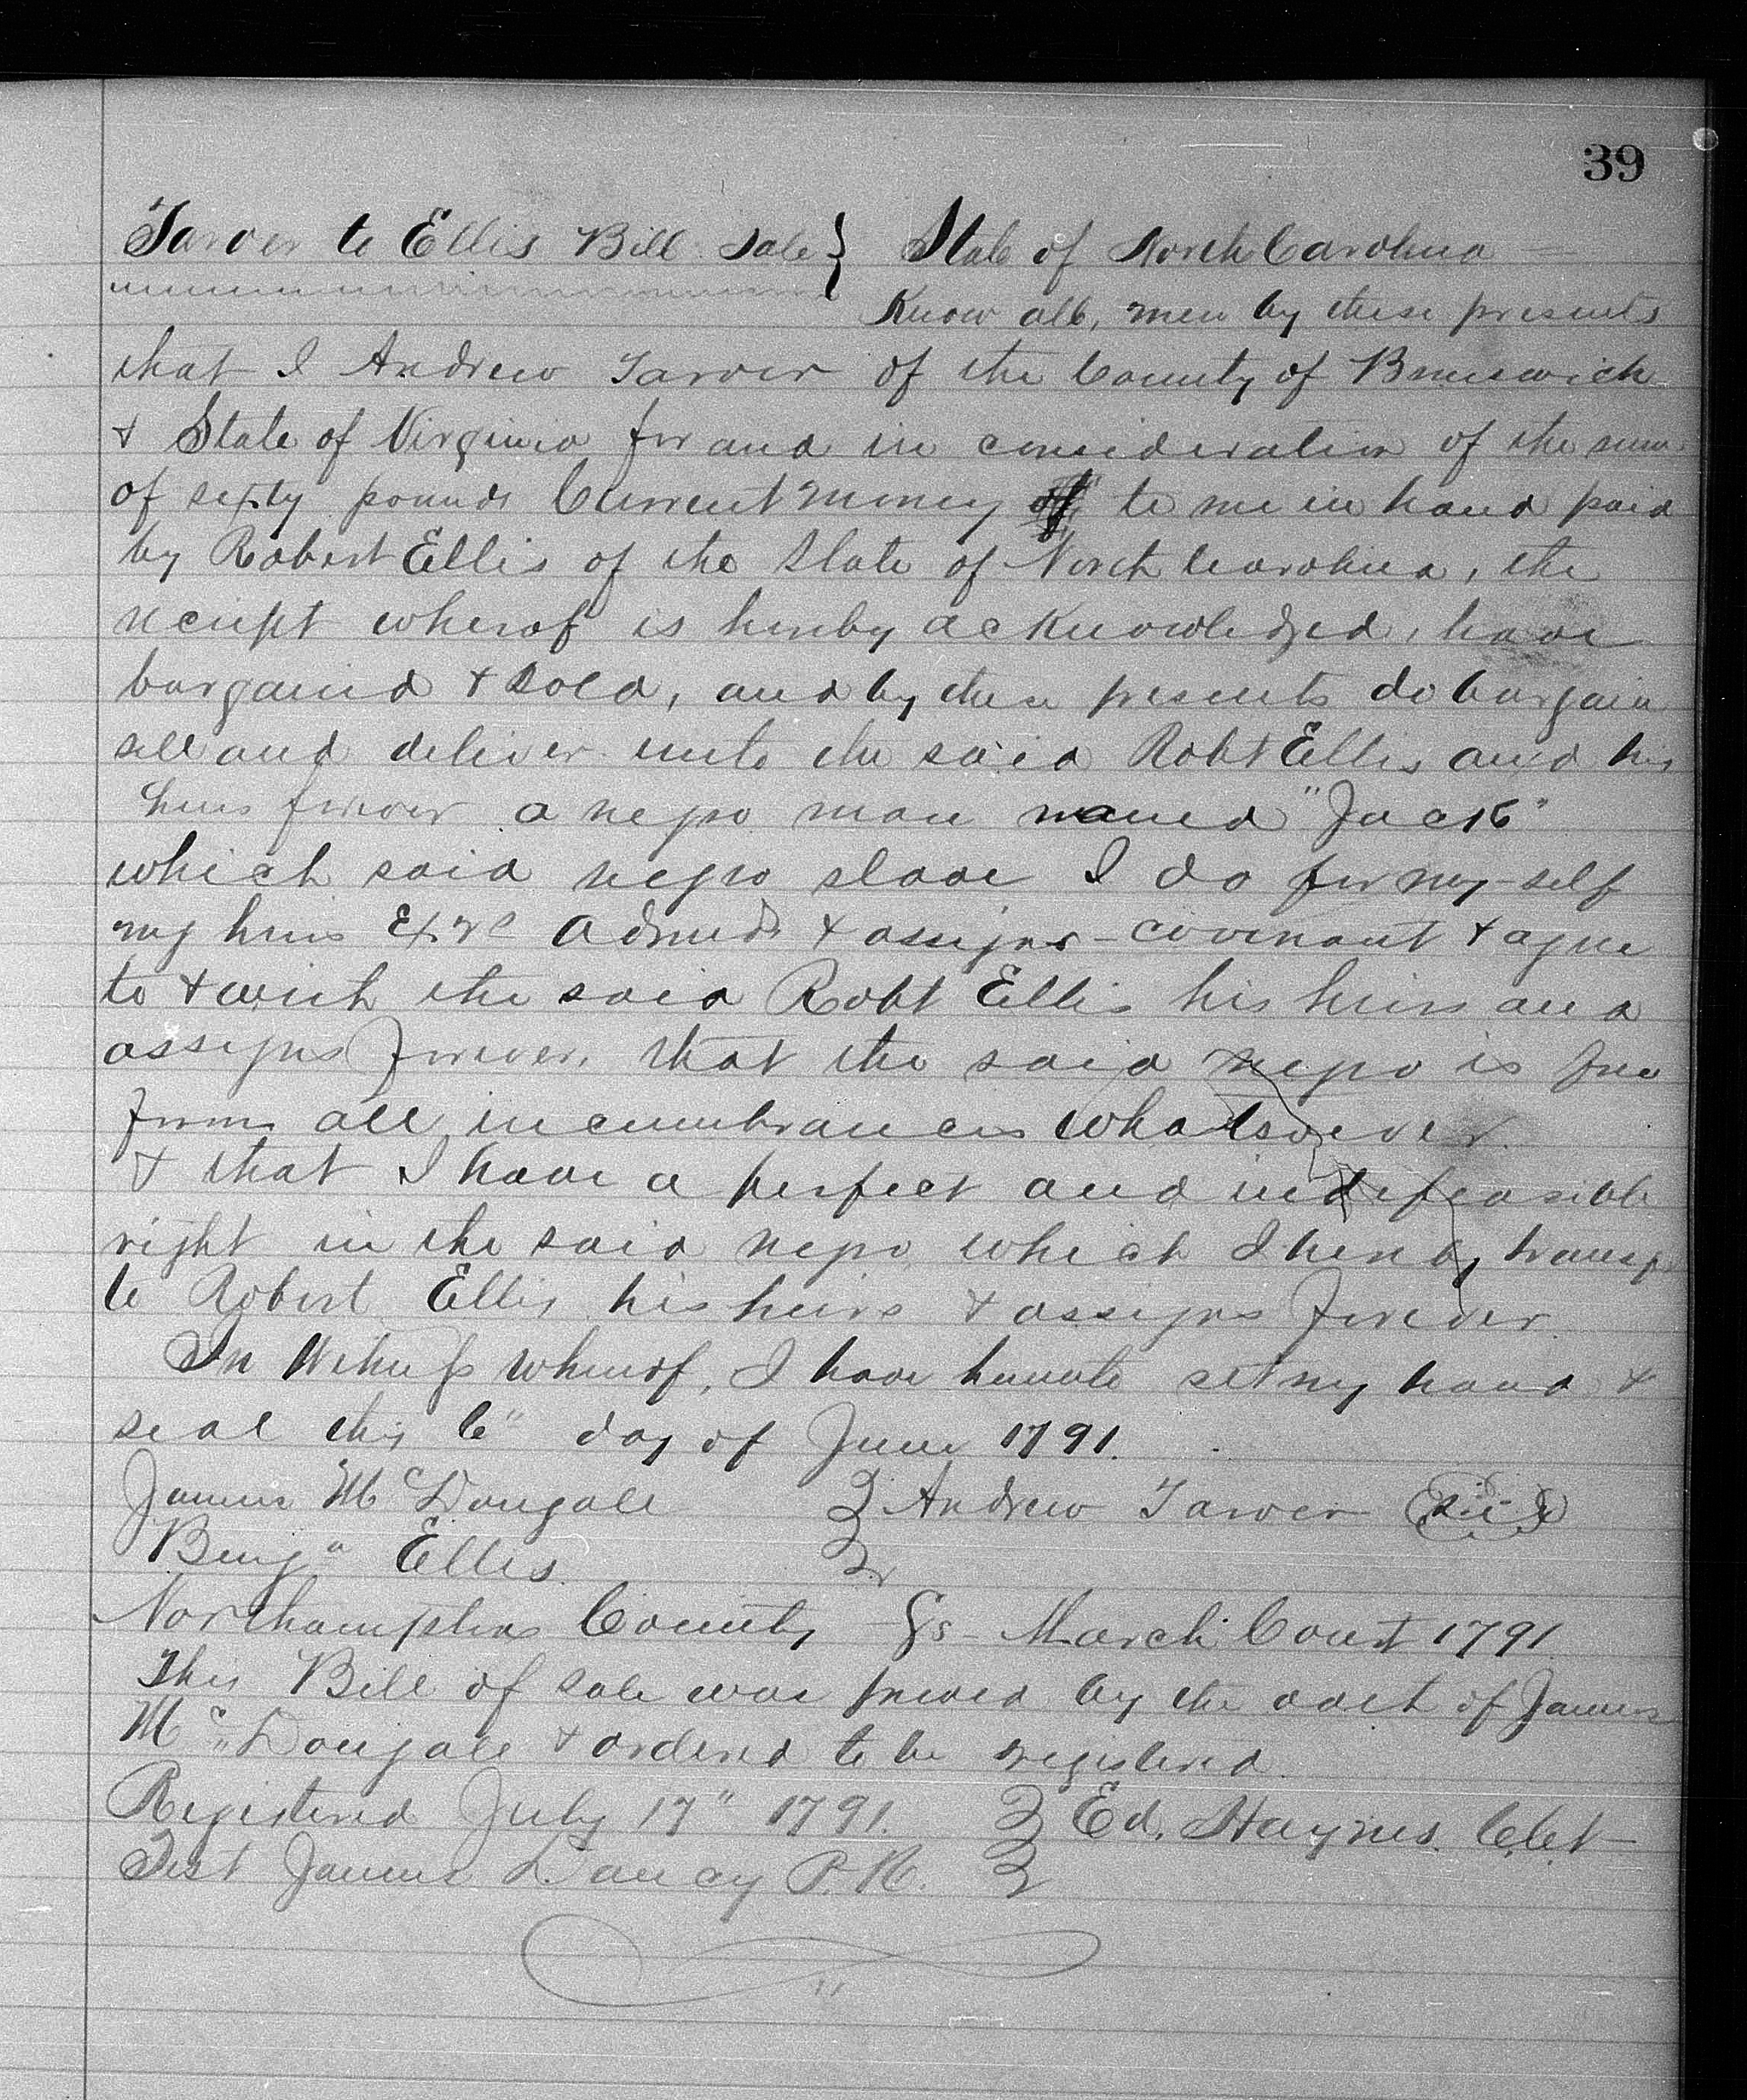 39
Tarver to Ellis Bill Sale } State of North Carolina =
Know all, men by these presents
that I Andrew Tarver of the County of Brunswick
& State of Virginia for and in consideration of the sum
of sixty pounds Current money to me in hand paid
by Robert Ellis of the State of North Carolina, the
receipt wherof is hereby acknowledged, have
bargained & sold, and by these presents do bargain
sell and deliver unto the said Robt Ellis and his
heirs forever a negro man named "Jack"
which said negro slave I do for my-self
my heirs Exrs Admrs & assigns - covenant & agree
to & with the said Robt Ellis his heirs and
assigns forever, that the said negro is free
from all incumbrances whatsoever
& that I have a perfect and indefeasible
right in the said negro which I hereby transf
to Robert Ellis his heirs & assigns forever.
In Witness whereof, I have hereunto set my hand &
seal this 6" day of June 1791.
James McDougall } Andrew Tarver (Seal)
Benja Ellis }
Northampton County Ss - March Court 1791
This Bill of sale was proved by the oath of James
McDougall & ordered to be registered.
Registered July 17" 1791. } Ed. Haynes. C.Ct
Test James Dancy P.R. }